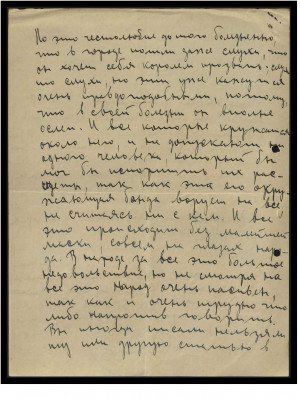 Но это честолюбие до того болезненно,
что в городе пошли даже слухи, что
он хочет себя королем
это слухи, но эти уже кажутся
очень правдоподобными, потому,
что в своей болезни он вполне
осел. И все которые кружатся
около него, и не допускают ни
одного человека, который бы
мог бы испортить их рас-
четы, так как эта его окру-
жающая банда ворует на все
не считаясь ни с кем. И все
это происходит без малейшей
маски, совсем на глазах наро-
да. В народе за все это большое
недовольствие, но не смотря на
все это народ очень пассивен,
так как и очень трудно что
либо напротив говорить.
Вы иногда писали нельзя ли
ту или другую статью в